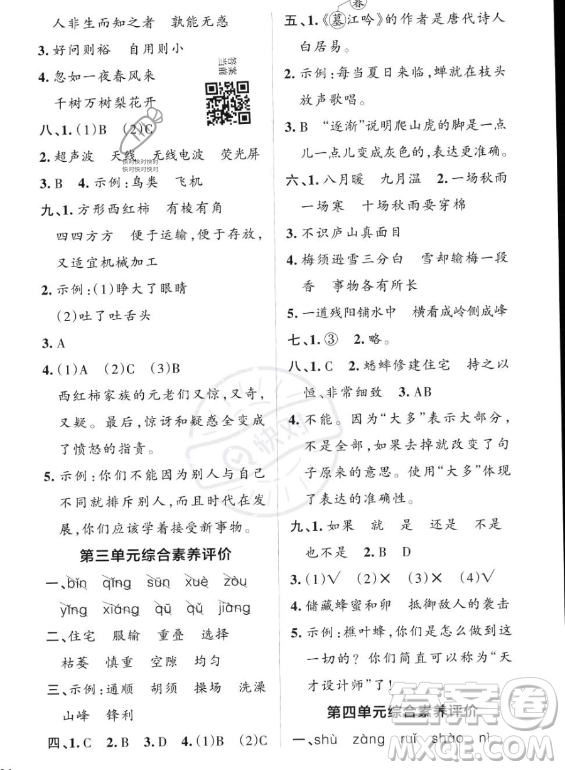 人非生而知之者　孰能无惑
3. 好问则裕　自用则小
4. 忽如一夜春风来
千树万树梨花开
八、1. (1)B　(2)C
2. 超声波　天线　无线电波　荧光屏
3. B　4. 示例:鸟类　飞机
九、1. 方形西红柿　有棱有角
四四方方　便于运输,便于存放,
又适宜机械加工
2. 示例:(1)睁大了眼睛
(2)吐了吐舌头
3. A
4. (1)A　(2)C　(3)B
西红柿家族的元老们又惊,又奇,
又疑。最后,惊讶和疑惑全变成
了愤怒的指责。
5. 示例:你们不能因为别人与自己
不同就排斥别人,而且时代在发
展,你们应该学着接受新事物。
第三单元综合素养评价
一、bǐn qǐng sūn xuè zòu
yǐng xiáng qū qǔ jiàng
二、住宅　服输　重叠　选择
枯萎　慎重　空隙　均匀
三、示例:通顺　胡须　操场　洗澡
山峰　锋利
四、1. C　2. B　3. D　4. (1)A　(2)C
春
五、1. 《暮江吟》的作者是唐代诗人
白居易。
2. 示例:每当夏日来临,蝉就在枝头
放声歌唱。
3. B　“逐渐”说明爬山虎的脚是一点
儿一点儿变成灰色的,表达更准确。
六、1. 八月暖　九月温　2. 一场秋雨
一场寒　十场秋雨要穿棉
3. 不识庐山真面目
4. 梅须逊雪三分白　雪却输梅一段
香　事物各有所长
5. 一道残阳铺水中　横看成岭侧成峰
七、1. ③　2. 略。
八、1. C　2. 蟋蟀修建住宅　持之以
恒、非常细致　3. AB
4. 不能。因为“大多”表示大部分,
不是全部,如果去掉就改变了句
子原来的意思。使用“大多”体现
了表达的准确性。
九、1. 如果　就　还　不是　不是
也不是　2. B
3. (1)√　(2)×　(3)×　(4)√
4. 储藏蜂蜜和卵　抵御敌人的袭击
5. 示例:樵叶蜂,你们是怎么做到这
一切的?你们简直可以称为“天
才设计师”了!
第四单元综合素养评价
一、shù zàng ruǐ shào nì